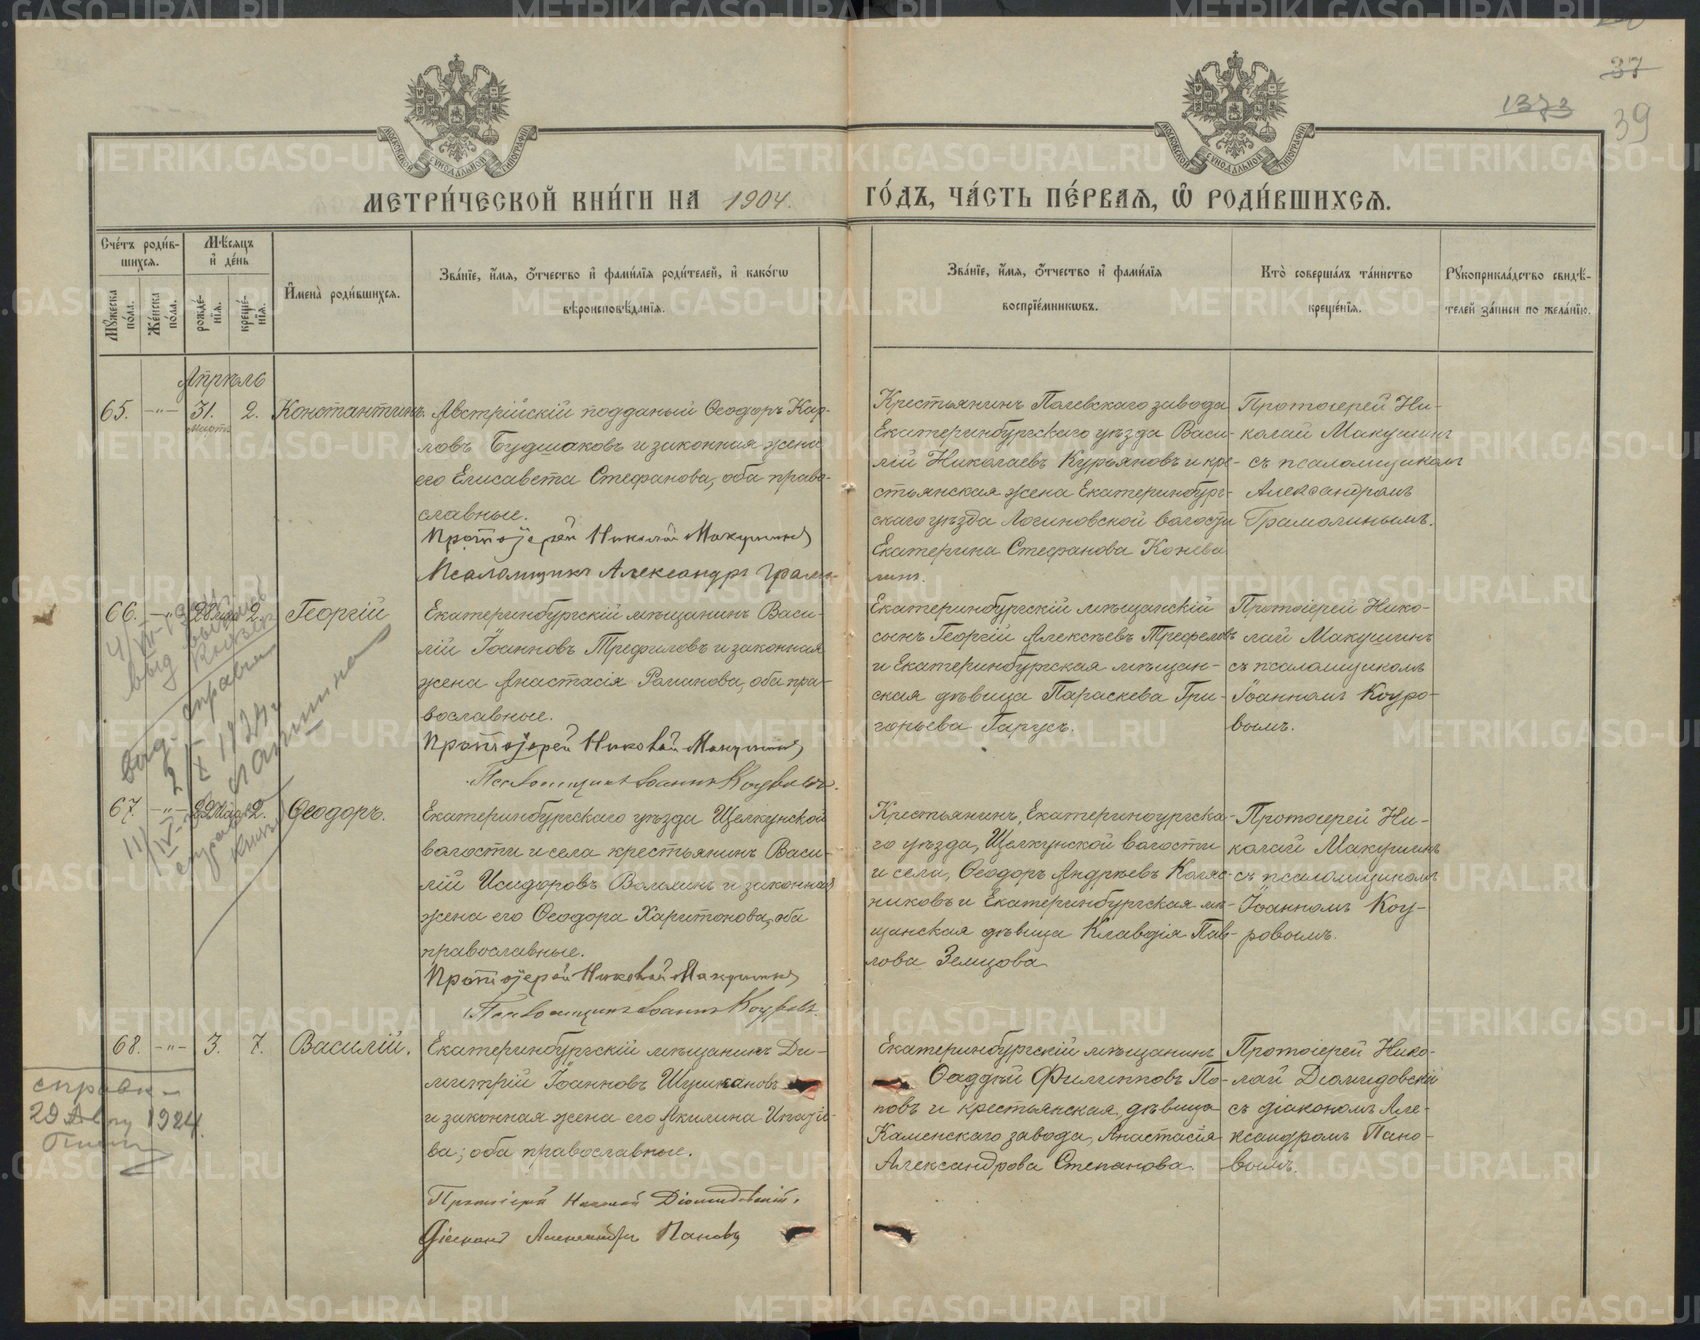 37
1373
39
МОСКОВСКОЙ СУНОДАЛЬНОЙ ТИПОГРАФІИ
МОСКОВСКОЙ СУНОДАЛЬНОЙ ТИПОГРАФІИ
МЕТРИ́ЧЕСКОЙ КНИ́ГИ НА 1904.
ГО́ДЪ, ЧА́СТЬ ПЕ́РВАѦ, Ѡ҆ РОДИ́ВШИХСѦ.
Сче́тъ роди́в-
шихсѧ.
Мꙋжеска по́ла.
Же́нска по́ла.
Мѣ́сѧцъ
и҆ де́нь
рожде́-
нїѧ.
креще́-
нїѧ.
И҆мена̀ роди́вшихсѧ.
Зва́нїе, и҆́мѧ, ѻ҆́тчество и҆ фами́лїѧ роди́телей, и҆ како́гѡ
вѣроисповѣ́данїѧ.
Зва́нїе, и҆́мѧ, ѻ҆́тчество и҆ фами́лїѧ
воспрїе́мникѡвъ.
Кто̀ соверша́лъ та́инство
креще́нїѧ.
Рꙋкоприкла́дство свидѣ́-
телей за́писи по жела́нїю.
Апрѣль
65. -"- 31. 2. Константинъ.
Марта
Австрійскій подданый Ѳеодоръ Кар-
ловъ Будшаковъ и законная жена
его Елисавета Стефанова, оба право-
славные.
Протоіерей Николай Макушинъ
Псаломщикъ Александръ Грамо-
Крестьянинъ Полевскаго завода
Екатеринбургскаго уѣзда Васи-
лій Николаевъ Курьяновъ и кре-
стьянская жена Екатеринбург-
скаго уѣзда Логиновской волости
Екатерина Стефанова Конева
Протоіерей Ни-
колай Макушинъ
съ псаломщикомъ
Александромъ
Грамолинымъ.
66. -"- 28 2. Георгій
Екатеринбургскій мѣщанинъ Васи-
лій Іоанновъ Трефиловъ и законная
жена Анастасія Романова, оба пра-
вославные.
Протоіерей Николай Макушинъ
Псаломщикъ Іоаннъ Коуровъ.
Екатеринбургскій мѣщанскій
сынъ Георгій Алексѣевъ Трефеловъ
и Екатеринбургская мѣщан-
ская дѣвица Параскева Гри-
горьева Гарусъ.
Протоіерей Нико-
лай Макушинъ
съ псаломщикомъ
Іоанномъ Коуро-
вымъ.
выд. справка
2/X 1924
67 -"- 29 2. Ѳеодоръ.
Екатеринбургскаго уѣзда Щелкунской
волости и села крестьянинъ Васи-
лій Исидоровъ Волкинъ и законная
жена его Ѳеодора Харитонова, оба
православные.
Протоіерей Николай Макушинъ
Псаломщикъ Іоаннъ Коуровъ.
Крестьянинъ, Екатеринбургска-
го уѣзда, Щелкунской волости
и села, Ѳеодоръ Андреевъ Коляс-
никовъ и Екатеринбургская мѣ-
щанская дѣвица Клавдія Пав-
лова Земцова
Протоіерей Ни-
колай Макушинъ
съ псаломщикомъ
Іоанномъ Коу-
ровымъ.
68. -"- 3. 7. Василій.
Екатеринбургскій мѣщанинъ Ди-
митрій Іоанновъ Шушкановъ
и законная жена его Акилина Игнатіе-
ва; оба православные.
Протоіерей Николай Діомидовскій.
Діаконъ Александръ Пановъ
Екатеринбургскій мѣщанинъ
Ѳаддѣй Филипповъ По-
повъ и крестьянская дѣвица
Каменскаго завода, Анастасія
Александрова Степанова.
Протоіерей Нико-
лай Діомидовскій
съ діакономъ Але-
ксандромъ Пано-
вымъ.
справк-
29 1924
METRIKI.GASO-URAL.RU